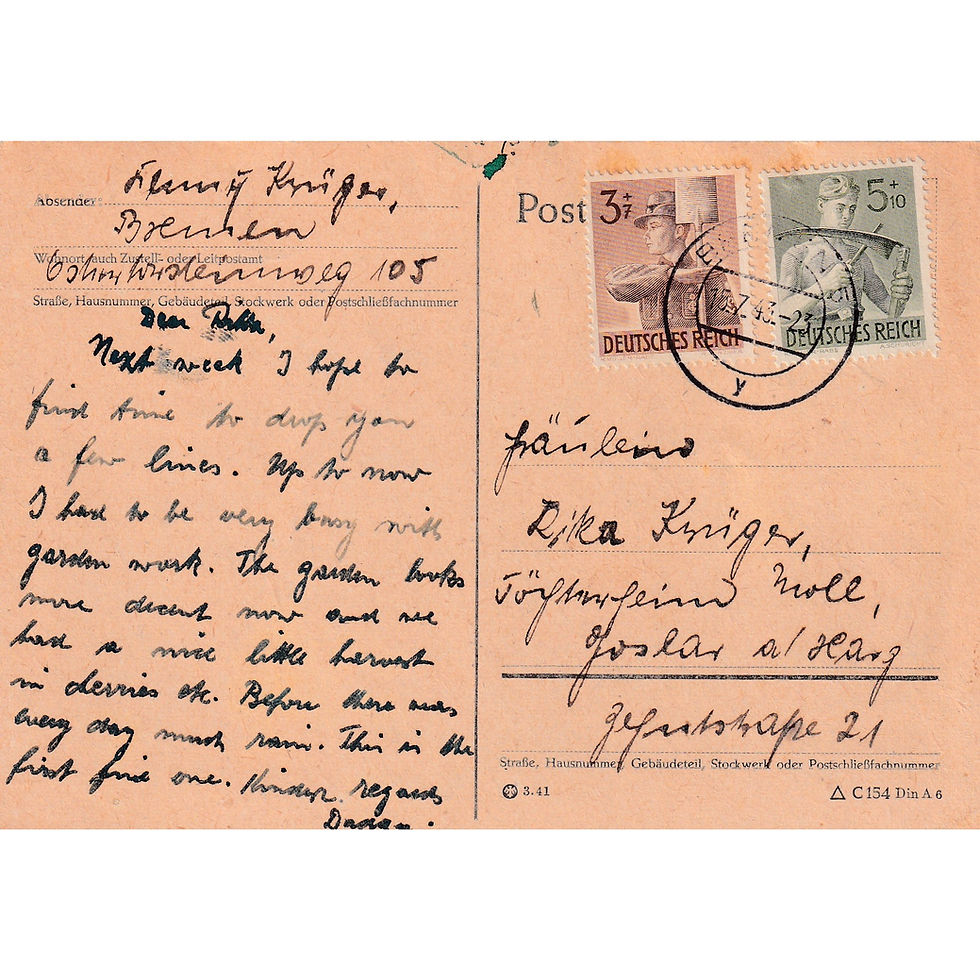 Krüger,
Absender:
Bremen
Wohnort, auch Zustell- oder Leitpostamt
105
Straße, Hausnummer, Gebäudeteil, Stockwerk oder Postschließfachnummer
Dear
Next week I hope to
find time to drop you
a few lines. Up to now
I had to be very busy with
garden work. The garden looks
more decent now and we
had a nice little harvest
in berries etc. Before there was
every day much rain. This is the
first fine one. Kindest regards
Post
3+7
DEUTSCHES REICH
5+10
DEUTSCHES REICH
.7.43.-
y
Fräulein
Rika Krüger,
Töchterheim Moll,
Goslar a/Harz
Zehntstraße 21
Straße, Hausnummer, Gebäudeteil, Stockwerk oder Postschließfachnummer
3.41
C 154 Din A 6